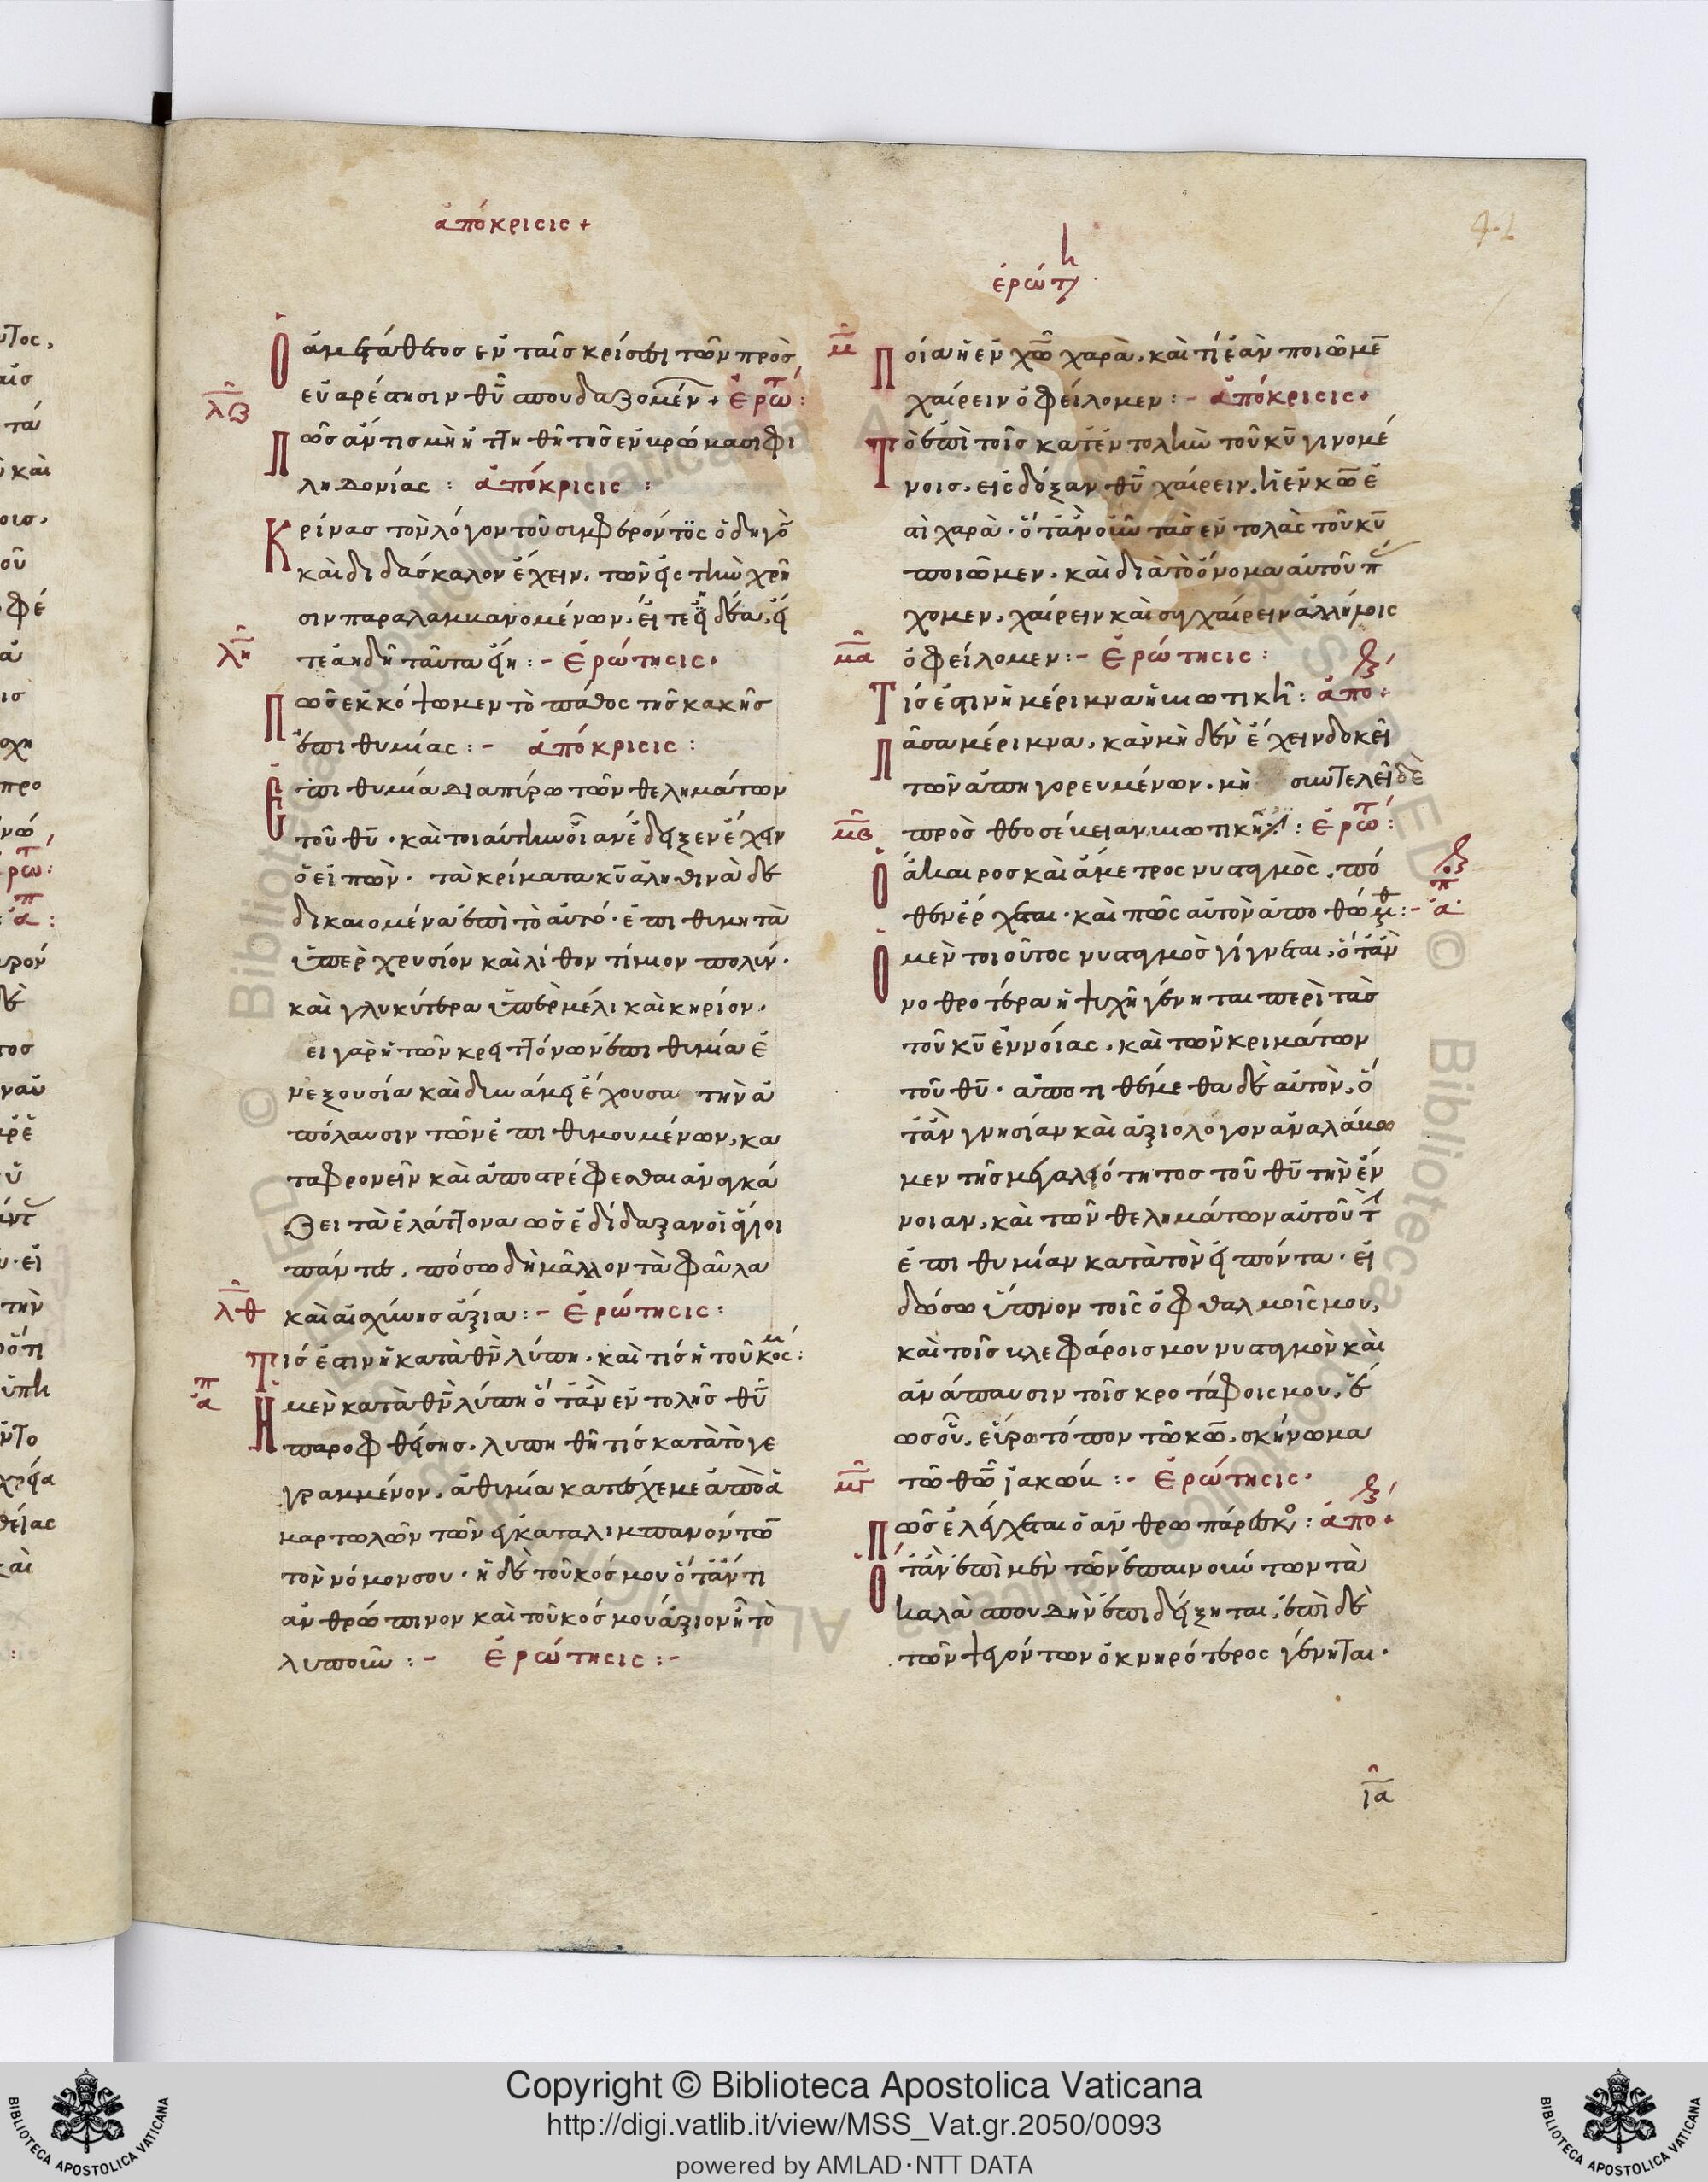 ἀπόκρισις +
Ὁ ἀμετάθετος ἐν ταῖς κρίσεσι τῶν πρὸς
εὐαρέστησιν θῦ σπουδαζομένων + Ἐρώτ :
λζ
Πῶς ἄν τις μὴ ἡττηθῆ τῆς ἐν βρώμασι φι
ληδονίας : ἀπόκρισις :
Κρίνας τὸν λόγον τοῦ συμφέροντος ὁδηγὸ
καὶ διδάσκαλον ἔχειν. τῶν εἰς τὴν χρῆ
σιν παραλαμβανομένων, εἴτε ἡδέα, εἴ
λη
τε ἀηδῆ ταῦτα εἴη :- Ἐρώτησις.
Πῶς ἐκκόψωμεν τὸ πάθος τῆς κακῆς
ἐπιθυμίας :- ἀπόκρισις :
Ἐπιθυμία διαπύρω τῶν θελημάτων
τοῦ θῦ. καὶ τοιαύτην οἵαν ἔδειξεν ἔχειν
ὁ εἰπὼν. τὰ κρίματα κῦ ἀληθινὰ δε
δικαιομένα ἐπὶ τὸ αὐτό. ἐπιθυμητὰ
ὑπὲρ χρυσίον καὶ λίθον τίμιον πολύν.
καὶ γλυκύτερα ὑπὲρ μέλι καὶ κηρίον.
ει γὰρ ἡ τῶν κρειττόνων ἐπιθυμία ἐ
ν ἐξουσία καὶ δυνάμει ἔχουσα τὴν ἀ
πόλαυσιν τῶν ἐπιθυμουμένων, κα
ταφρονεῖν καὶ ἀποστρέφεσθαι ἀναγκά
ζει τὰ ἐλάττονα ὡς ἐδίδαξαν οἱ ἅγιοι
πάντες. πόσω δὴ μᾶλλον τὰ φαῦλα
λθ
καὶ αἰσχύνης ἄξια :- Ἐρώτησις :
Τίς ἐστιν ἡ κατὰ θν λύπη. καὶ τίς ἡ τοῦ κόσμ :
ἀπ
Ἡ μὲν κατὰ θν λύπη ὅταν ἐντολῆς θῦ
παροφθείσης. λυπηθῆ τίς κατὰ τὸ γε
γραμμένον, ἀθυμία κατέσχέ με ἀπὸ ἁ
μαρτωλῶν τῶν ἐγκαταλιμπανόντω
τὸν νόμον σου. ἡ δὲ τοῦ κόσμου ὅταν τι
ἀνθρώπινον καὶ τοῦ κόσμου ἄξιον ἦ τὸ
λυποῦν :- Ἐρώτησις :-
ἐρώτ
μ
Ποία ἡ ἐν χῶ χαρὰ, καὶ τί ἐὰν ποιῶμε
χαίρειν ὀφείλομεν :- ἀπόκρισις.
Τὸ ἐπὶ τοῖς κατ' ἐντολὴν τοῦ κῦ γινομέ
νοις, εἰς δόξαν θῦ χαίρειν. ἡ ἐν κω ἐ
αὶ χαρὰ. ὅταν οὖν τὰς ἐντολὰς τοῦ κῦ
ποιῶμεν, καὶ διὰ τὸ ὄνομα αὐτοῦ π
χομεν, χαίρειν καὶ συγχαίρειν ἀλλήλοις
μα
ὀφείλομεν :- Ἐρώτησις :
Τίς ἐστιν ἡ μέριμνα ἡ βιωτικὴ : ἀπό.
Πᾶσα μέριμνα, κἂν μηδὲν ἔχειν δοκεῖ
τῶν ἀπηγορευμένων. μὴ συντελεῖ δὲ
μβ
πρὸς θεοσέβειαν βιωτικὴ : Ἐρώτ :
Ὁ ἄκαιρος καὶ ἄμετρος νυσταγμὸς, πό
θεν ἔρχεται. καὶ πῶς αὐτὸν ἀποθώμεθ :- ἀπ
Ὁ μὲν τοιοῦτος νυσταγμὸς γίγνεται, ὅταν
νοθροτέρα ἡ ψυχὴ γένηται περὶ τὰς
τοῦ κῦ ἐννοίας, καὶ τῶν κριμάτων
τοῦ θῦ. ἀποτιθέμεθα δὲ αὐτὸν, ὅ
ταν γνησίαν καὶ ἀξιόλογον ἀναλάβω
μεν τῆς μεγαλειότητος τοῦ θῦ τὴν ἔν
νοιαν, καὶ τῶν θελημάτων αὐτοῦ τ
ἐπιθυμίαν κατὰ τὸν εἰπόντα. εἰ
δώσω ὕπνον τοῖς ὀφθαλμοῖς μου,
καὶ τοῖς βλεφάροις μου νυσταγμὸν καὶ
ἀνάπαυσιν τοῖς κροτάφοις μου, ἕ
ως οὗ, εὕρω τόπον τῶ κω, σκήνωμα
μγ
τῶ θῶ ἰακώβ :- Ἐρώτησις.
Πῶς ἐλέγχεται ὁ ἄνθρωπ : ἀπό.
Ὅταν ἐπὶ μὲν τῶν ἐπαινούντων τὰ
καλὰ σπουδὴν ἐπιδείξηται, ἐπὶ δὲ
τῶν ψεγόντων ὀκνηρότερος γένηται.
ια
Copyright © Biblioteca Apostolica Vaticana
http://digi.vatlib.it/view/MSS_Vat.gr.2050/0093
powered by AMLAD·NTT DATA
BIBLIOTECA APOSTOLICA VATICANA
BIBLIOTECA APOSTOLICA VATICANA